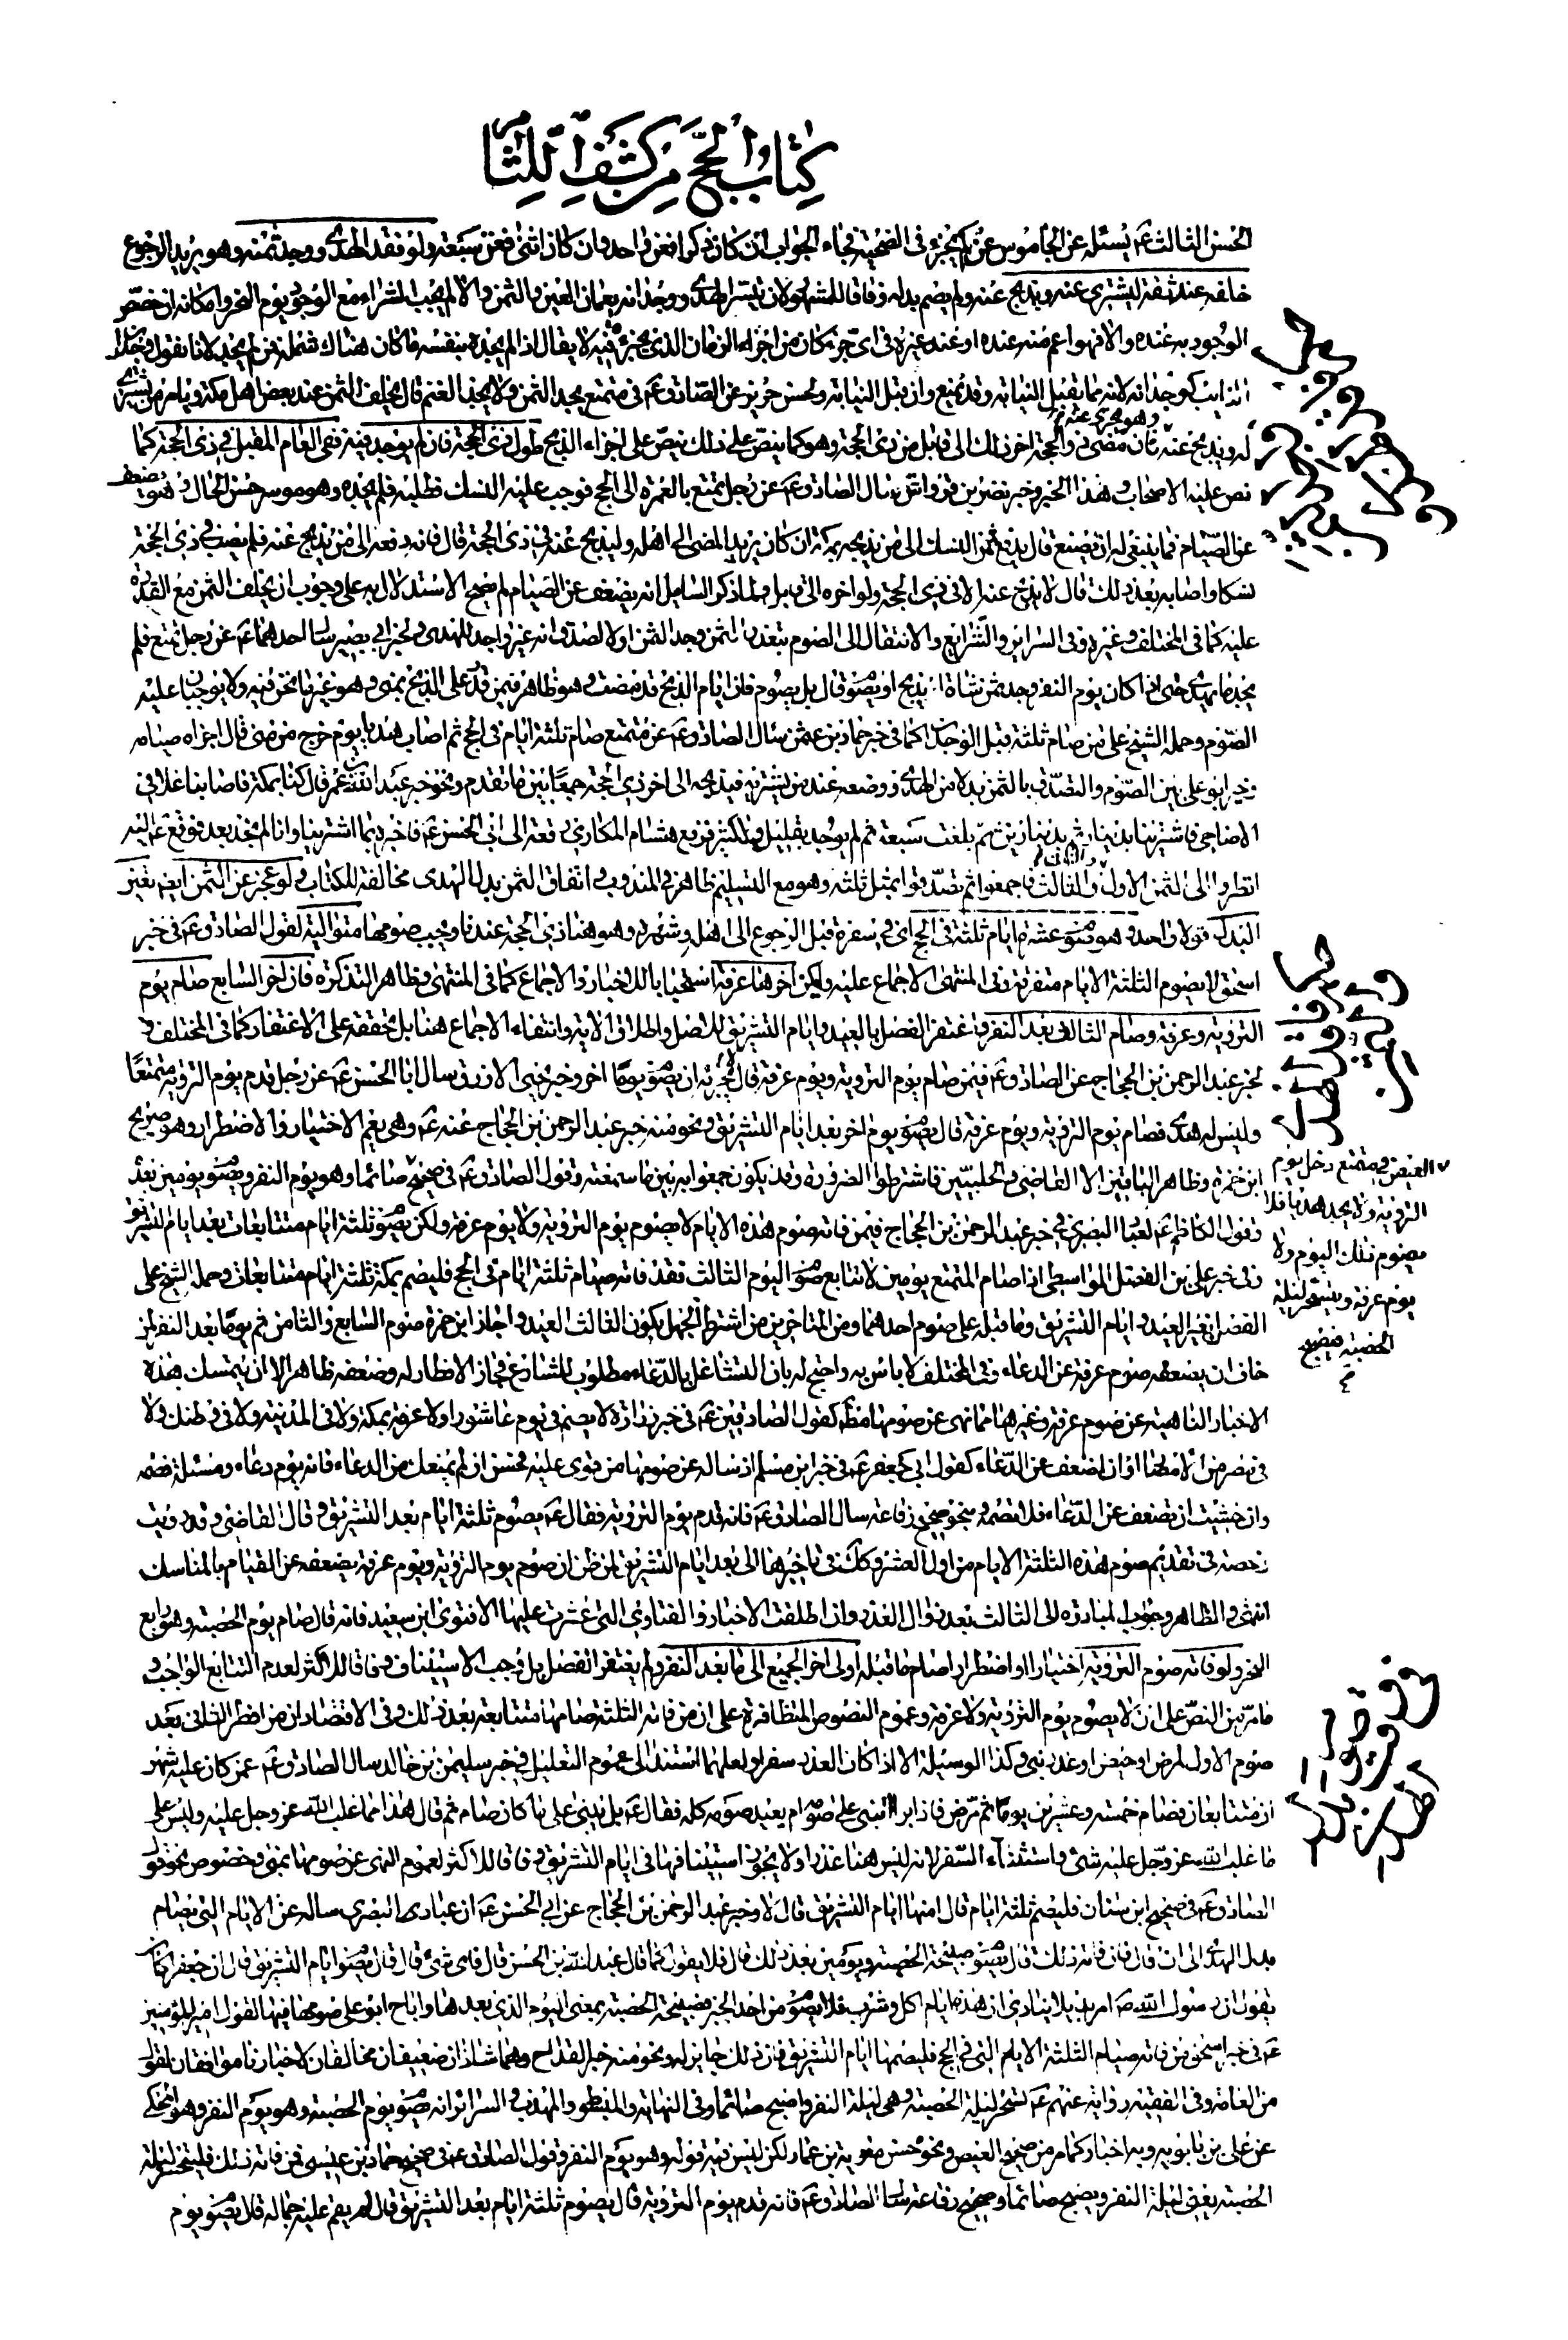 كتاب الحج من كشف اللثام
الحسن الثالث ع يسئله عن الجاموس عن كم يجزئ في الضحية فجاء الجواب ان كان ذكرا فعن واحد وان كان انثى فعن سبعة ولو فقد الهدى ووجد ثمنه وهو يريد الرجوع
خلفه عند ثقة ليشترى عنه ويذبح عنه ولم يصم بدله وفاقا للمشهور لان تيسر الهدى ووجدانه يعمان العين والثمن والا لم يجب الشراء مع الوجود يوم النحر وامكانه ان خصص
الوجود به عنده والا فهو اعم منه عنده او عند غيره في اي جزء كان من اجزاء الزمان الذي يجزئ فيه لا يقال اذا لم يجده بنفسه ما كان هناك شمله من لم يجد لانا نقول وجدان
النائب كوجدانه لانه مما يقبل النيابة وقد يمنع وان قبل النيابة ولحسن حريز عن الصادق ع في متمتع يجد الثمن ولا يجد الغنم قال يخلف الثمن عند بعض اهل مكة ويامر من يشترى
له ويذبح عنه وهو يجزى عنه فان مضى ذو الحجة اخر ذلك الى قابل من ذي الحجة وهو كما ينص على ذلك ينص على اجزاء الذبح طول ذي الحجة فان لم يوجد فيه ففى العام المقبل في ذي الحجة كما
نص عليه الاصحاب وهذا الخبر وخبر نضر بن قرواش سال الصادق ع عن رجل تمتع بالعمرة الى الحج فوجب عليه النسك فطلبه فلم يجده وهو موسر حسن الحال وهو يضعف
عن الصيام فما ينبغى له ان يصنع قال يدفع ثمن النسك الى من يذبحه بمكة ان كان يريد المضى الى اهله وليذبح عنه في ذي الحجة قال فانه دفعه الى من يذبح عنه فلم يصب في ذي الحجة
نسكا واصابه بعد ذلك قال لا يذبح عنه الا في ذي الحجة ولو اخره الى قابل ولما ذكر السايل انه يضعف عن الصيام لم يصح الاستدلال به على وجوب ان يخلف الثمن مع القدرة
عليه كما في المختلف وغيره وفي السرائر والشرائع والانتقال الى الصوم بتعذر الثمن وجد الثمن او لا لصدق انه غير واجد للهدى ولخبر ابي بصير سال احدهما ع عن رجل تمتع فلم
يجد ما يهدى حتى اذا كان يوم النفر وجد ثمن شاة ايذبح او يصوم قال بل يصوم فان ايام الذبح قد مضت وهو ظاهر فيمن قدر على الذبح بمنى وهو غير ما نحن فيه ولا يوجبان عليه
الصوم وحمله الشيخ على من صام ثلثة قبل الوجدان كما في خبر حماد بن عثمن سال الصادق ع عن متمتع صام ثلثة ايام في الحج ثم اصاب هديا يوم خرج من منى قال اجزاه صيامه
وخير ابو علي بين الصوم والتصدق بالثمن بدلا من الهدى ووضعه عند من يشتريه فيذبحه الى اخر ذي الحجة جمعا بين ما تقدم ونحو خبر عبد الله بن عمر قال كنا بمكة فاصابنا غلاء في
الاضاحي فاشترينا بدينار ثم بدينارين ثم بلغت سبعة ثم لم يوجد بقليل ولا كثير فرقع هشام المكارى رقعة الى ابي الحسن ع فاخبره بما اشترينا وانا لم نجد بعد فوقع ع اليه
انظروا الى الثمن الاول والثانى والثالث فاجمعوا ثم تصدقوا بمثل ثلثه وهو مع التسليم ظاهر في المندوب واتفاق الثمن بدلا لهدى مخالفة للكتاب ولو عجز عن الثمن ايضا تعين
البدل قولا واحدا وهو صوم عشرة ايام ثلثة في الحج اي في سفره قبل الرجوع الى اهله وشهره وهو هنا ذي الحجة عندنا ويجب صومها متوالية لقول الصادق ع في خبر
اسحق لا يصوم الثلثة الايام متفرقة وفي المنتهى الاجماع عليه وليكن اخرها عرفة استحبابا للاخبار والاجماع كما في المنتهى وظاهر التذكرة فان اخر السابع صام يوم
التروية وعرفة وصام الثالث بعد النفر واغتفر الفصل بالعيد وايام التشريق للاصل واطلاق الاية وانتفاء الاجماع هنا بل تحققه على الاغتفار كما في المختلف و
لخبر عبد الرحمن بن الحجاج عن الصادق ع فيمن صام يوم التروية ويوم عرفة قال يجزيه ان يصوم يوما اخر وخبر يحيى الازرق سال ابا الحسن ع عن رجل قدم يوم التروية متمتعا
وليس له هدى فصام يوم التروية ويوم عرفة قال يصوم يوم اخر بعد ايام التشريق ونحو منه خبر عبد الرحمن بن الحجاج عنه ع وهى يعم الاختيار والاضطرار وهو صريح
ابن حمزة وظاهر الباقين الا القاضي والحلبيين فاشترطوا الضرورة وقد يكون جمعوا به بين ما سمعته وقول الصادق ع في صحيح صائما وهو يوم النفر ويصوم يومين بعد
وقول الكاظم ع لعباد البصرى في خبر عبد الرحمن بن الحجاج فيمن فاته صوم هذه الايام لا يصوم يوم التروية ولا يوم عرفة ولكن يصوم ثلثة ايام متتابعات بعد ايام التشريق
وفي خبر علي بن الفضل الواسطي اذا صام المتمتع يومين لا يتابع صوم اليوم الثالث فقد فاته صيام ثلثة ايام في الحج فليصم بمكة ثلثة ايام متتابعات وحمله الشيخ على
الفصل بغير العيد وايام التشريق وما قبله على صوم احدهما ومن المتاخرين من اشترط الجهل بكون الثالث العيد واجاز ابن حمزة صوم السابع والثامن ثم يوما بعد النفر لمن
خاف ان يضعفه صوم عرفة عن الدعاء وفي المختلف لا باس به واحتج له بان التشاغل بالدعاء مطلوب للشارع فجاز الافطار له وضعفه ظاهر الا ان يتمسك بهذه
الاخبار الناهية عن صوم عرفة وغيرها مما نهى عن صومها مط كقول الصادقين ع في خبر زرارة لا يصم في يوم عاشورا ولا عرفة بمكة ولا في المدينة ولا في وطنك ولا
في مصر من الامصار او ان اضعف عن الدعاء كقول ابي جعفر ع في خبر ابن مسلم اذ ساله عن صومها من قوى عليه فحسن ان لم يمنعك من الدعاء فانه يوم دعاء ومسئلة فصمه
وان خشيت ان تضعف عن الدعاء فلا تصمه وبنحو صحيح رفاعة سال الصادق ع فانه قدم يوم التروية فقال ع يصوم ثلثة ايام بعد التشريق وقال القاضي وقد رويت
رخصة في تقديم صوم هذه الثلثة الايام من اول العشر وكك في تاخيرها الى بعد ايام التشريق لمن ظن ان صوم يوم التروية ويوم عرفة يضعفه عن القيام بالمناسك
انتهى والظاهر وجوب المبادرة الى الثالث بعد زوال العذر وان اطلقت الاخبار والفتاوى التي عثرت عليها الا فتوى ابن سعيد فانه قال صام يوم الحصبة وهو رابع
النحر ولو فاته صوم التروية اختيارا او اضطرارا صام ما قبله او لا اخر الجميع الى ما بعد النفر ولم يغتفر الفصل بل وجب الاستيناف وفاقا للاكثر لعدم التتابع الواجب و
ما مر من النص على ان لا يصوم يوم التروية ولا عرفة وعموم النصوص المتظافرة على ان من فاته الثلثة صامها متتابعة بعد ذلك وفي الاقتصاد ان من افطر الثاني بعد
صوم الاول لمرض او حيض او عذر بنى وكذا الوسيلة الا اذا كان العذر سفرا ولعلهما استندا الى عموم التعليل في خبر سليمن بن خالد سال الصادق ع عمن كان عليه شهر
ان متتابعان فصام خمسة وعشرين يوما ثم مرض فاذا برا ايبنى على صومه ام يعيد صومه كله فقال ع بل يبنى على ما كان صام ثم قال هذا مما غلب الله عز وجل عليه وليس على
ما غلب الله عز وجل عليه شئ واستثناء السفر لانه ليس هنا عذرا ولا يجوز استينافها في ايام التشريق وفاقا للاكثر لعموم النهى عن صومها بمنى وخصوص نحو قول
الصادق ع في صحيح ابن سنان فليصم ثلثة ايام قال امنها ايام التشريق قال لا وخبر عبد الرحمن بن الحجاج عن ابي الحسن ع ان عباد البصرى ساله عن الايام التي يصام
بدل الهدى الى ان قال فان فاته ذلك قال يصوم صبيحة الحصبة ويومين بعد ذلك قال فلا يقول كما قال عبد الله بن الحسن قال فاى شئ قال قال يصوم ايام التشريق قال ان جعفرا كان
يقول ان رسول الله ص امر بديلا ينادى ان هذه ايام اكل وشرب فلا يصومن احد الخبر فصبيحة الحصبة بمعنى اليوم الذي بعدها واباح ابو علي صومها فيها لقول امير المؤمنين
ع في خبر اسحق من فاته صيام الثلثة الايام التي في الحج فليصمها ايام التشريق فان ذلك جايز له ونحو منه خبر القداح وهما شاذان ضعيفان مخالفان لاخبارنا موافقان لقول
من العامة وفي الفقيه رواية عنهم ع تسحر ليلة الحصبة وهى ليلة النفر واصبح صائما وفي النهاية والمبسوط والمهذب والسرائر انه يصوم يوم الحصبة وهو يوم النفر وهو المحكى
عن علي بن بابويه وبه اخبار كما مر من صحيح العيص ونحو حسن معوية بن عمار لكن ليس فيه قوله وهو يوم النفر وقول الصادق ع في صحيح حماد بن عيسى فمن فاته ذلك فليتسحر ليلة
الحصبة يعنى ليلة النفر ويصبح صائما وصحيح رفاعة سال الصادق ع فانه قدم يوم التروية قال يصوم ثلثة ايام بعد التشريق قال لم يقم عليه جماله قال يصوم يوم
العيص في متمتع دخل يوم
التروية ولا يجد هديا فلا
يصوم ذلك اليوم ولا
يوم عرفة ويتسحر ليلة
الحصبة فيصبح